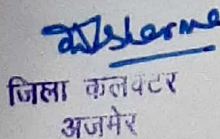 जिला कलक्टर
अजमेर